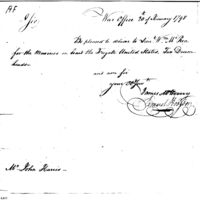 Sir War Office 20 January 1798
Be pleased to deliver to Lieu.t W.m McRea
for the Marines on board the Frigate United States, Two Drum
heads
and am Sir
your Ob.
James McHenry
Samuel Hodgdon
Mr John Harris